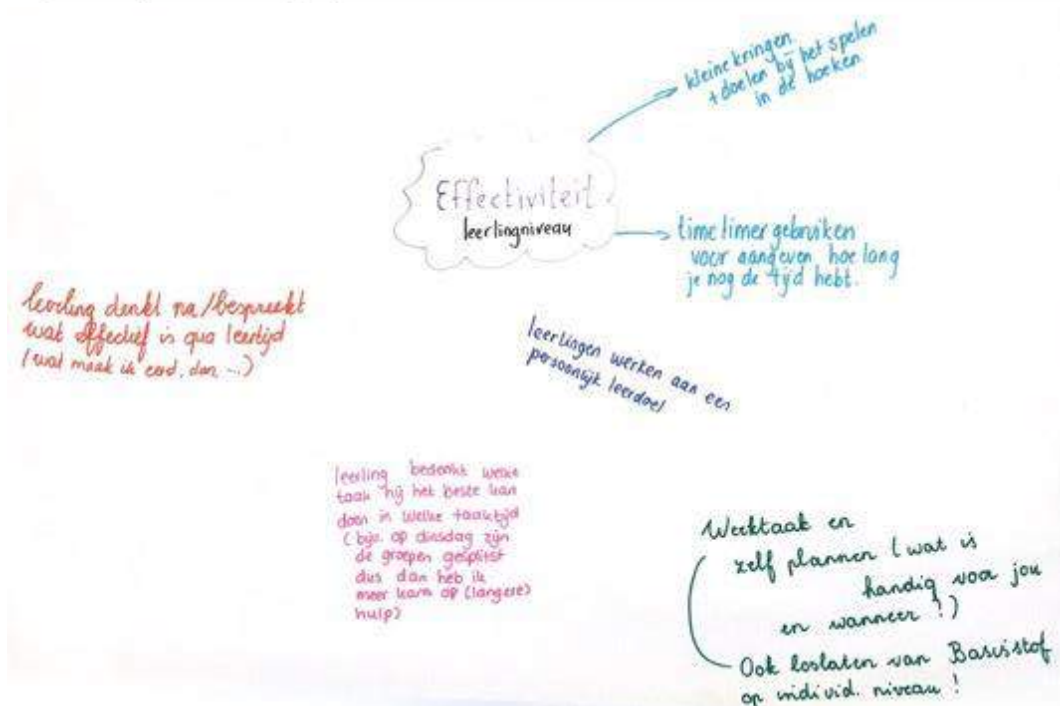 kleine kringen.
+ doelen bij het spelen
in de hoeken
Effectiviteit
leerlingniveau
time timer gebruiken
voor aangeven hoe lang
je nog de tijd hebt.
leerling denkt na/bespreekt
wat effectief is qua leertijd
(wat maak ik eerst, dan ...)
leerlingen werken aan een
persoonlijk leerdoel
leerling bedenkt welke
taak hij het beste kan
doen in welke taaktijd
(bijv. op dinsdag zijn
de groepen gesplitst
dus dan heb ik
meer kans op (langere)
hulp)
Weektaak en
zelf plannen (wat is
handig voor jou
en wanneer?)
Ook loslaten van Basisstof
op individ. niveau!